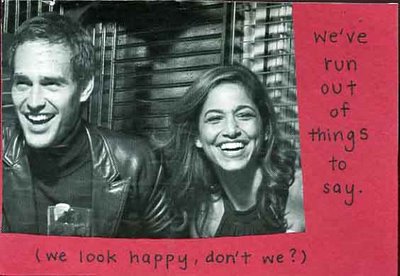 we've
run
out
of
things
to
say.
(we look happy, don't we?)